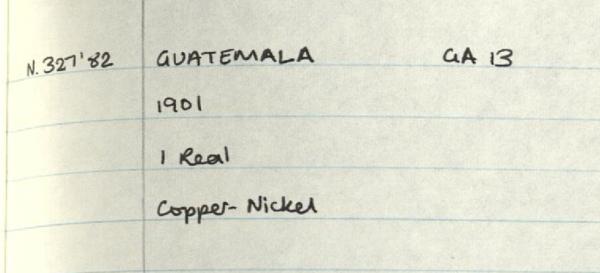 N.327'82 GUATEMALA GA 13
1901
1 Real
Copper-Nickel